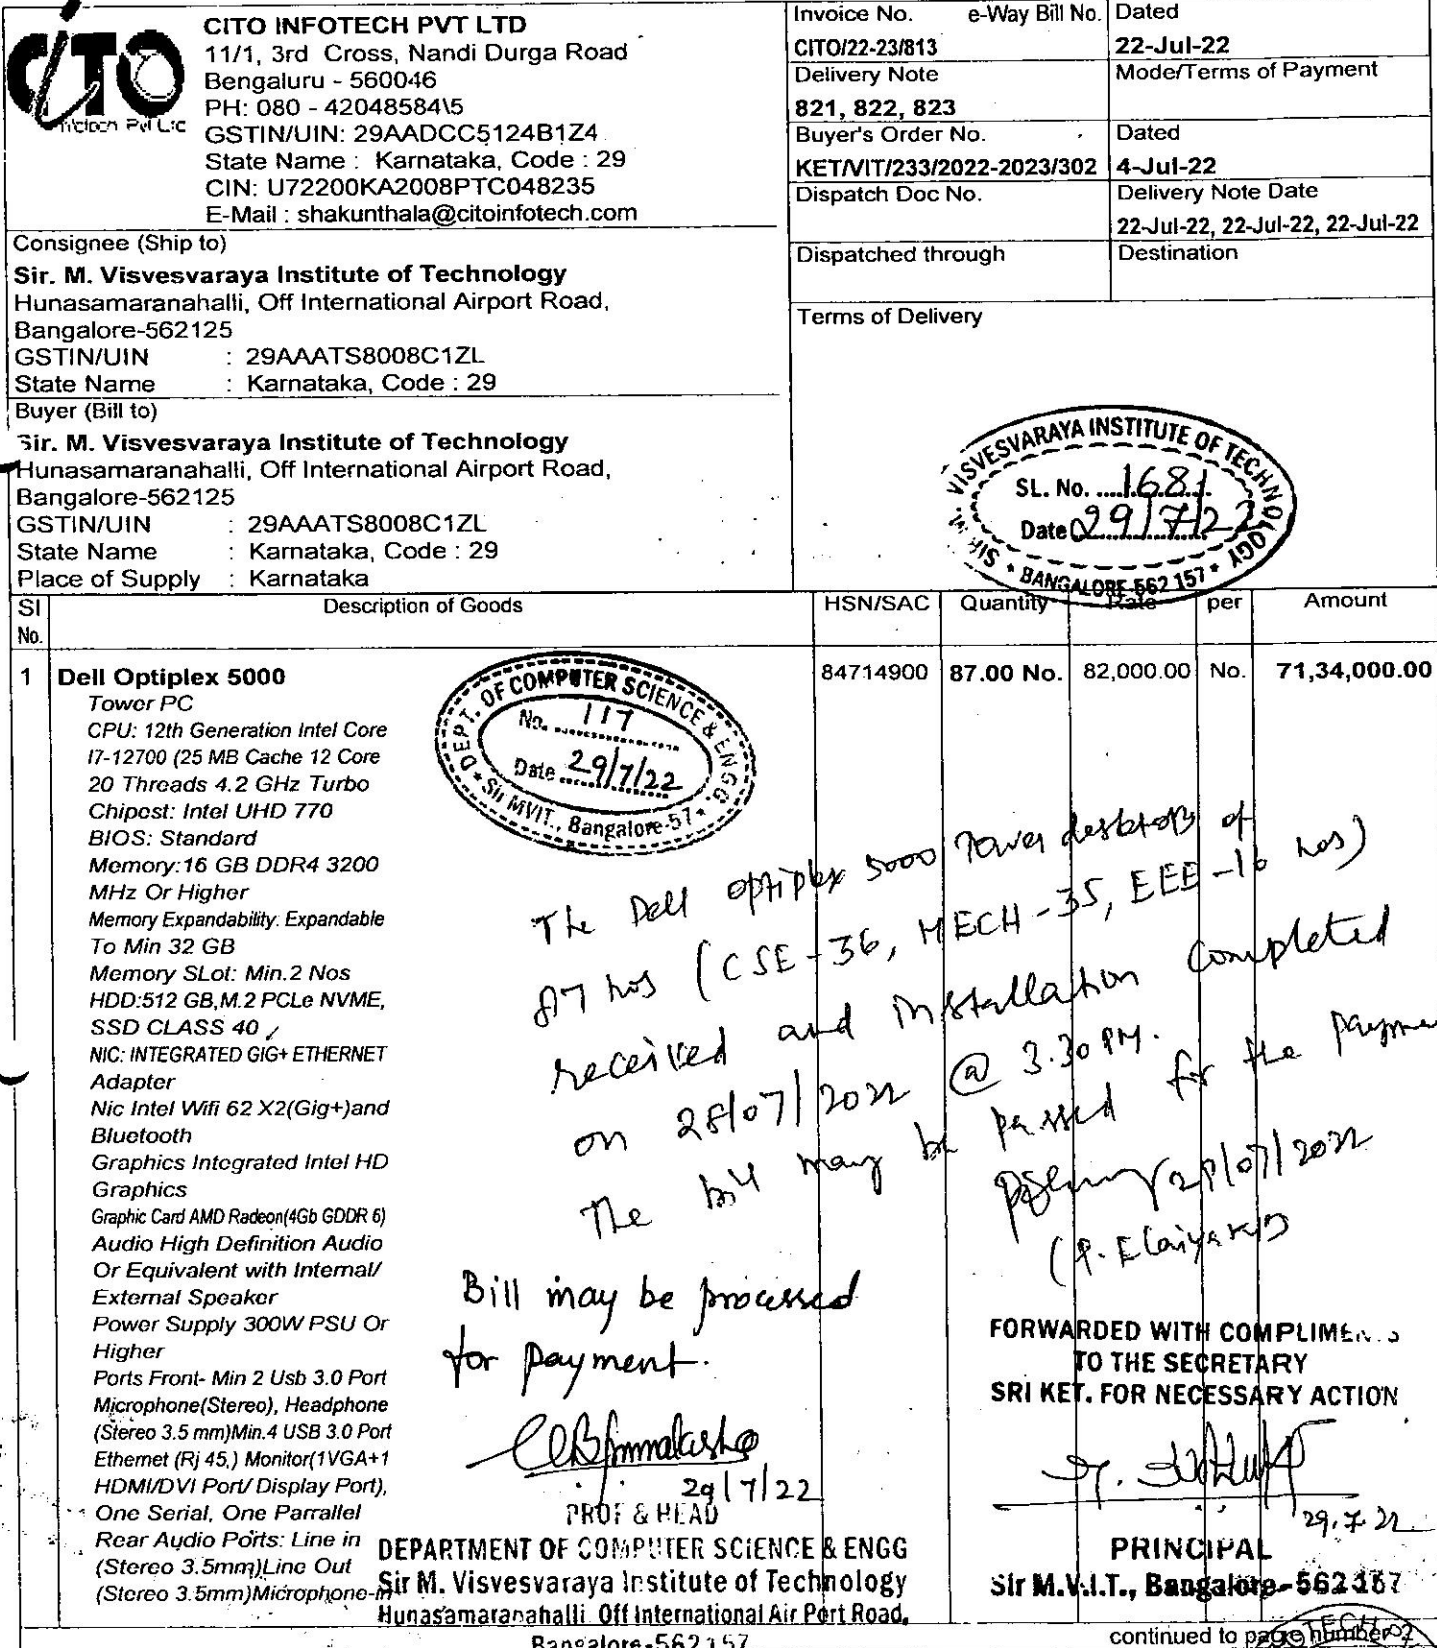 CITO
Infotech Pvt Ltd
CITO INFOTECH PVT LTD
11/1, 3rd Cross, Nandi Durga Road
Bengaluru - 560046
PH: 080 - 42048584\5
GSTIN/UIN: 29AADCC5124B1Z4
State Name : Karnataka, Code : 29
CIN: U72200KA2008PTC048235
E-Mail : shakunthala@citoinfotech.com
Invoice No. e-Way Bill No.
CITO/22-23/813
Dated
22-Jul-22
Delivery Note
821, 822, 823
Mode/Terms of Payment
Buyer's Order No.
KET/VIT/233/2022-2023/302
Dated
4-Jul-22
Dispatch Doc No.
Delivery Note Date
22-Jul-22, 22-Jul-22, 22-Jul-22
Dispatched through
Destination
Terms of Delivery
Consignee (Ship to)
Sir. M. Visvesvaraya Institute of Technology
Hunasamaranahalli, Off International Airport Road,
Bangalore-562125
GSTIN/UIN : 29AAATS8008C1ZL
State Name : Karnataka, Code : 29
Buyer (Bill to)
Sir. M. Visvesvaraya Institute of Technology
Hunasamaranahalli, Off International Airport Road,
Bangalore-562125
GSTIN/UIN : 29AAATS8008C1ZL
State Name : Karnataka, Code : 29
Place of Supply : Karnataka
SIR M. VISVESVARAYA INSTITUTE OF TECHNOLOGY
SL. No. 1681
Date 29/7/22
* BANGALORE-562 157 *
SI No. Description of Goods HSN/SAC Quantity Rate per Amount
1 Dell Optiplex 5000 84714900 87.00 No. 82,000.00 No. 71,34,000.00
Tower PC
CPU: 12th Generation Intel Core
I7-12700 (25 MB Cache 12 Core
20 Threads 4.2 GHz Turbo
Chipest: Intel UHD 770
BIOS: Standard
Memory:16 GB DDR4 3200
MHz Or Higher
Memory Expandability. Expandable
To Min 32 GB
Memory SLot: Min.2 Nos
HDD:512 GB,M.2 PCLe NVME,
SSD CLASS 40
NIC: INTEGRATED GIG+ ETHERNET
Adapter
Nic Intel Wifi 62 X2(Gig+)and
Bluetooth
Graphics Integrated Intel HD
Graphics
Graphic Card AMD Radeon(4Gb GDDR 6)
Audio High Definition Audio
Or Equivalent with Internal/
External Speaker
Power Supply 300W PSU Or
Higher
Ports Front- Min 2 Usb 3.0 Port
Microphone(Stereo), Headphone
(Stereo 3.5 mm)Min.4 USB 3.0 Port
Ethernet (Rj 45,) Monitor(1VGA+1
HDMI/DVI Port/ Display Port),
One Serial, One Parrallel
Rear Audio Ports: Line in
(Stereo 3.5mm)Line Out
(Stereo 3.5mm)Microphone-in
DEPT. OF COMPUTER SCIENCE & ENGG.
No. 117
Date 29/7/22
* Sir MVIT., Bangalore-57 *
The Dell optiplex 5000 Tower desktops of
87 nos (CSE-36, MECH-35, EEE-16 nos)
received and installation completed
on 28/07/2022 @ 3.30 PM.
The bill may be passed for the payme
28/07/2022
Bill may be processed
for payment.
29/7/22
PROF & HEAD
DEPARTMENT OF COMPUTER SCIENCE & ENGG
Sir M. Visvesvaraya Institute of Technology
Hunasamaranahalli Off International Air Port Road,
Bangalore-562157
FORWARDED WITH COMPLIMENTS
TO THE SECRETARY
SRI KET. FOR NECESSARY ACTION
29.7.22
PRINCIPAL
Sir M.V.I.T., Bangalore-562157
continued to page number 2